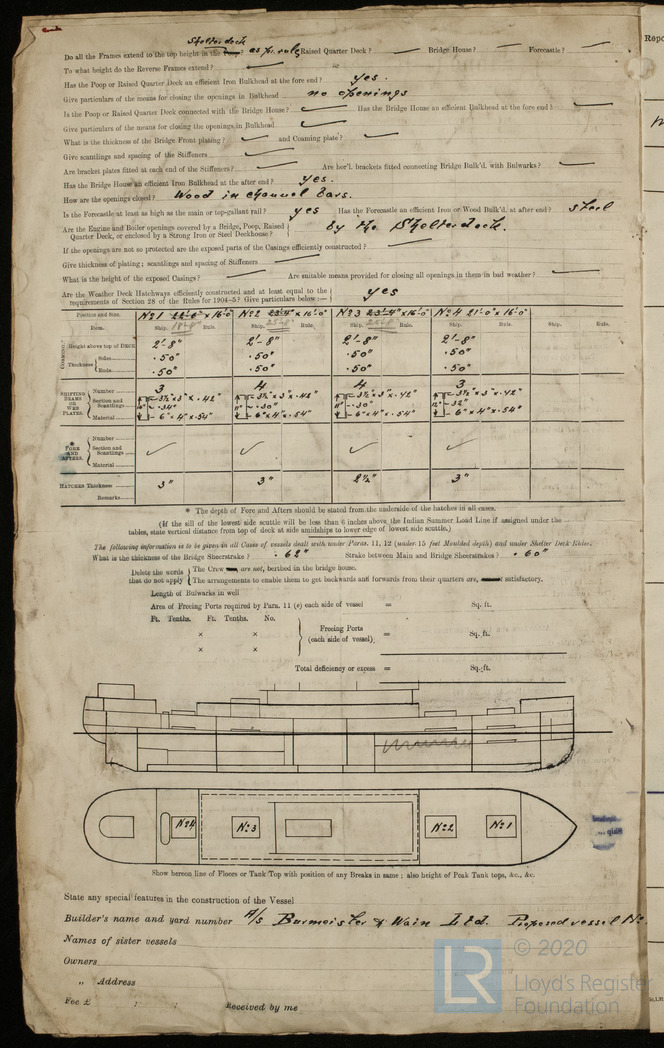 Shelterdeck
Do all the Frames extend to the top height in the Poop? as pr. rule Raised Quarter Deck? Bridge House? Forecastle?
To what height do the Reverse Frames extend?
Has the Poop or Raised Quarter Deck an efficient Iron Bulkhead at the fore end? yes.
Give particulars of the means for closing the openings in Bulkhead no openings
Is the Poop or Raised Quarter Deck connected with the Bridge House? Has the Bridge House an efficient Bulkhead at the fore end?
Give particulars of the means for closing the openings in Bulkhead
What is the thickness of the Bridge Front plating? and Coaming plate?
Give scantlings and spacing of the Stiffeners
Are bracket plates fitted at each end of the Stiffeners? Are hor'l. brackets fitted connecting Bridge Bulk'd. with Bulwarks?
Has the Bridge House an efficient Iron Bulkhead at the after end? yes.
How are the openings closed? Wood in channel bars.
Is the Forecastle at least as high as the main or top-gallant rail? yes Has the Forecastle an efficient Iron or Wood Bulk'd. at after end? steel
Are the Engine and Boiler openings covered by a Bridge, Poop, Raised Quarter Deck, or enclosed by a Strong Iron or Steel Deckhouse? by the Shelterdeck.
If the openings are not so protected are the exposed parts of the Casings efficiently constructed?
Give thickness of plating; scantlings and spacing of Stiffeners
What is the height of the exposed Casings? Are suitable means provided for closing all openings in them in bad weather?
Are the Weather Deck Hatchways efficiently constructed and at least equal to the
requirements of Section 28 of the Rules for 1904-5? Give particulars below:— yes
Position and Size. No 1 x 16'-0" No 2 23'-4" x 16'-0" No 3 23'-4" x 16'-0" No 4 21'-0" x 16'-0"
Item. Ship. Rule. Ship. Rule. Ship. Rule. Ship. Rule.
Height above top of DECK 2'-8" 2'-8" 2'-8" 2'-8"
Thickness Sides .50" .50" .50" .50"
Ends .50" .50" .50" .50"
SHIPPING BEAMS OR WEB PLATES.
Number 3 4 4 3
Section and Scantlings 3½"x3"x.42" 3½"x3"x.42" 3½"x3"x.42" 3½"x3"x.42"
.34" .30" .30" .32"
Material 6"x4"x.54" 6"x4"x.54" 6"x4"x.54" 6"x4"x.54"
* FORE AND AFTERS.
Number
Section and Scantlings
Material
HATCHES Thickness 3" 3" 2½" 3"
Remarks
* The depth of Fore and Afters should be stated from the underside of the hatches in all cases.
(If the sill of the lowest side scuttle will be less than 6 inches above the Indian Summer Load Line if assigned under the
tables, state vertical distance from top of deck at side amidships to lower edge of lowest side scuttle.)
The following information is to be given in all Cases of vessels dealt with under Paras. 11, 12 (under 15 feet Moulded depth) and under Shelter Deck Rules.
What is the thickness of the Bridge Sheerstrake? .62" Strake between Main and Bridge Sheerstrakes? .60"
Delete the words that do not apply
The Crew are not, berthed in the bridge house.
The arrangements to enable them to get backwards and forwards from their quarters are, satisfactory.
Length of Bulwarks in well
Area of Freeing Ports required by Para. 11 (e) each side of vessel = Sq. ft.
Ft. Tenths. Ft. Tenths. No.
x x
x x
Freeing Ports (each side of vessel) = Sq. ft.
Total deficiency or excess = Sq. ft.
No 4 No 3 No 2 No 1
Show hereon line of Floors or Tank Top with position of any Breaks in same; also height of Peak Tank tops, &c., &c.
State any special features in the construction of the Vessel
Builder's name and yard number A/s Burmeister & Wain Ltd. Proposed vessel No.
Names of sister vessels
Owners
" Address
Fee £ : : Received by me
LR © 2020
Lloyd's Register
Foundation